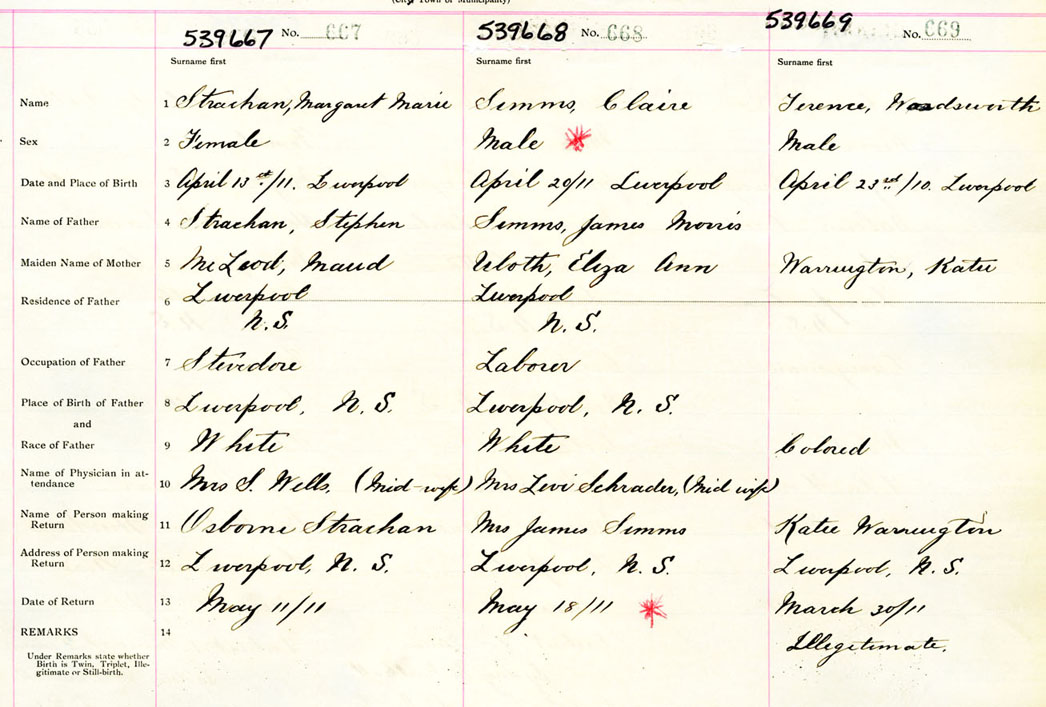 (City, Town or Municipality)
539667 No. 667 539668 No. 668 539669 No. 669
Surname first Surname first Surname first
Name 1 Strachan, Margaret Marie Simms, Claire Terence, Woodsworth
Sex 2 Female Male Male
Date and Place of Birth 3 April 13th/11. Liverpool April 20/11 Liverpool April 23rd/10. Liverpool
Name of Father 4 Strachan, Stephen Simms, James Morris
Maiden Name of Mother 5 McLeod, Maud Uloth, Eliza Ann Warrington, Katie
Residence of Father 6 Liverpool Liverpool
N.S. N.S.
Occupation of Father 7 Stevidore Laborer
Place of Birth of Father 8 Liverpool, N.S. Liverpool, N.S.
and
Race of Father 9 White White Colored
Name of Physician in at-
tendance 10 Mrs S. Wells, (Mid-wife) Mrs Levi Schrader, (Mid wife)
Name of Person making
Return 11 Osborne Strachan Mrs James Simms Katie Warrington
Address of Person making
Return 12 Liverpool, N.S. Liverpool, N.S. Liverpool, N.S.
Date of Return 13 May 11/11 May 18/11 March 30/11
REMARKS 14 Illegitimate.
Under Remarks state whether
Birth is Twin, Triplet, Ille-
gitimate or Still-birth.